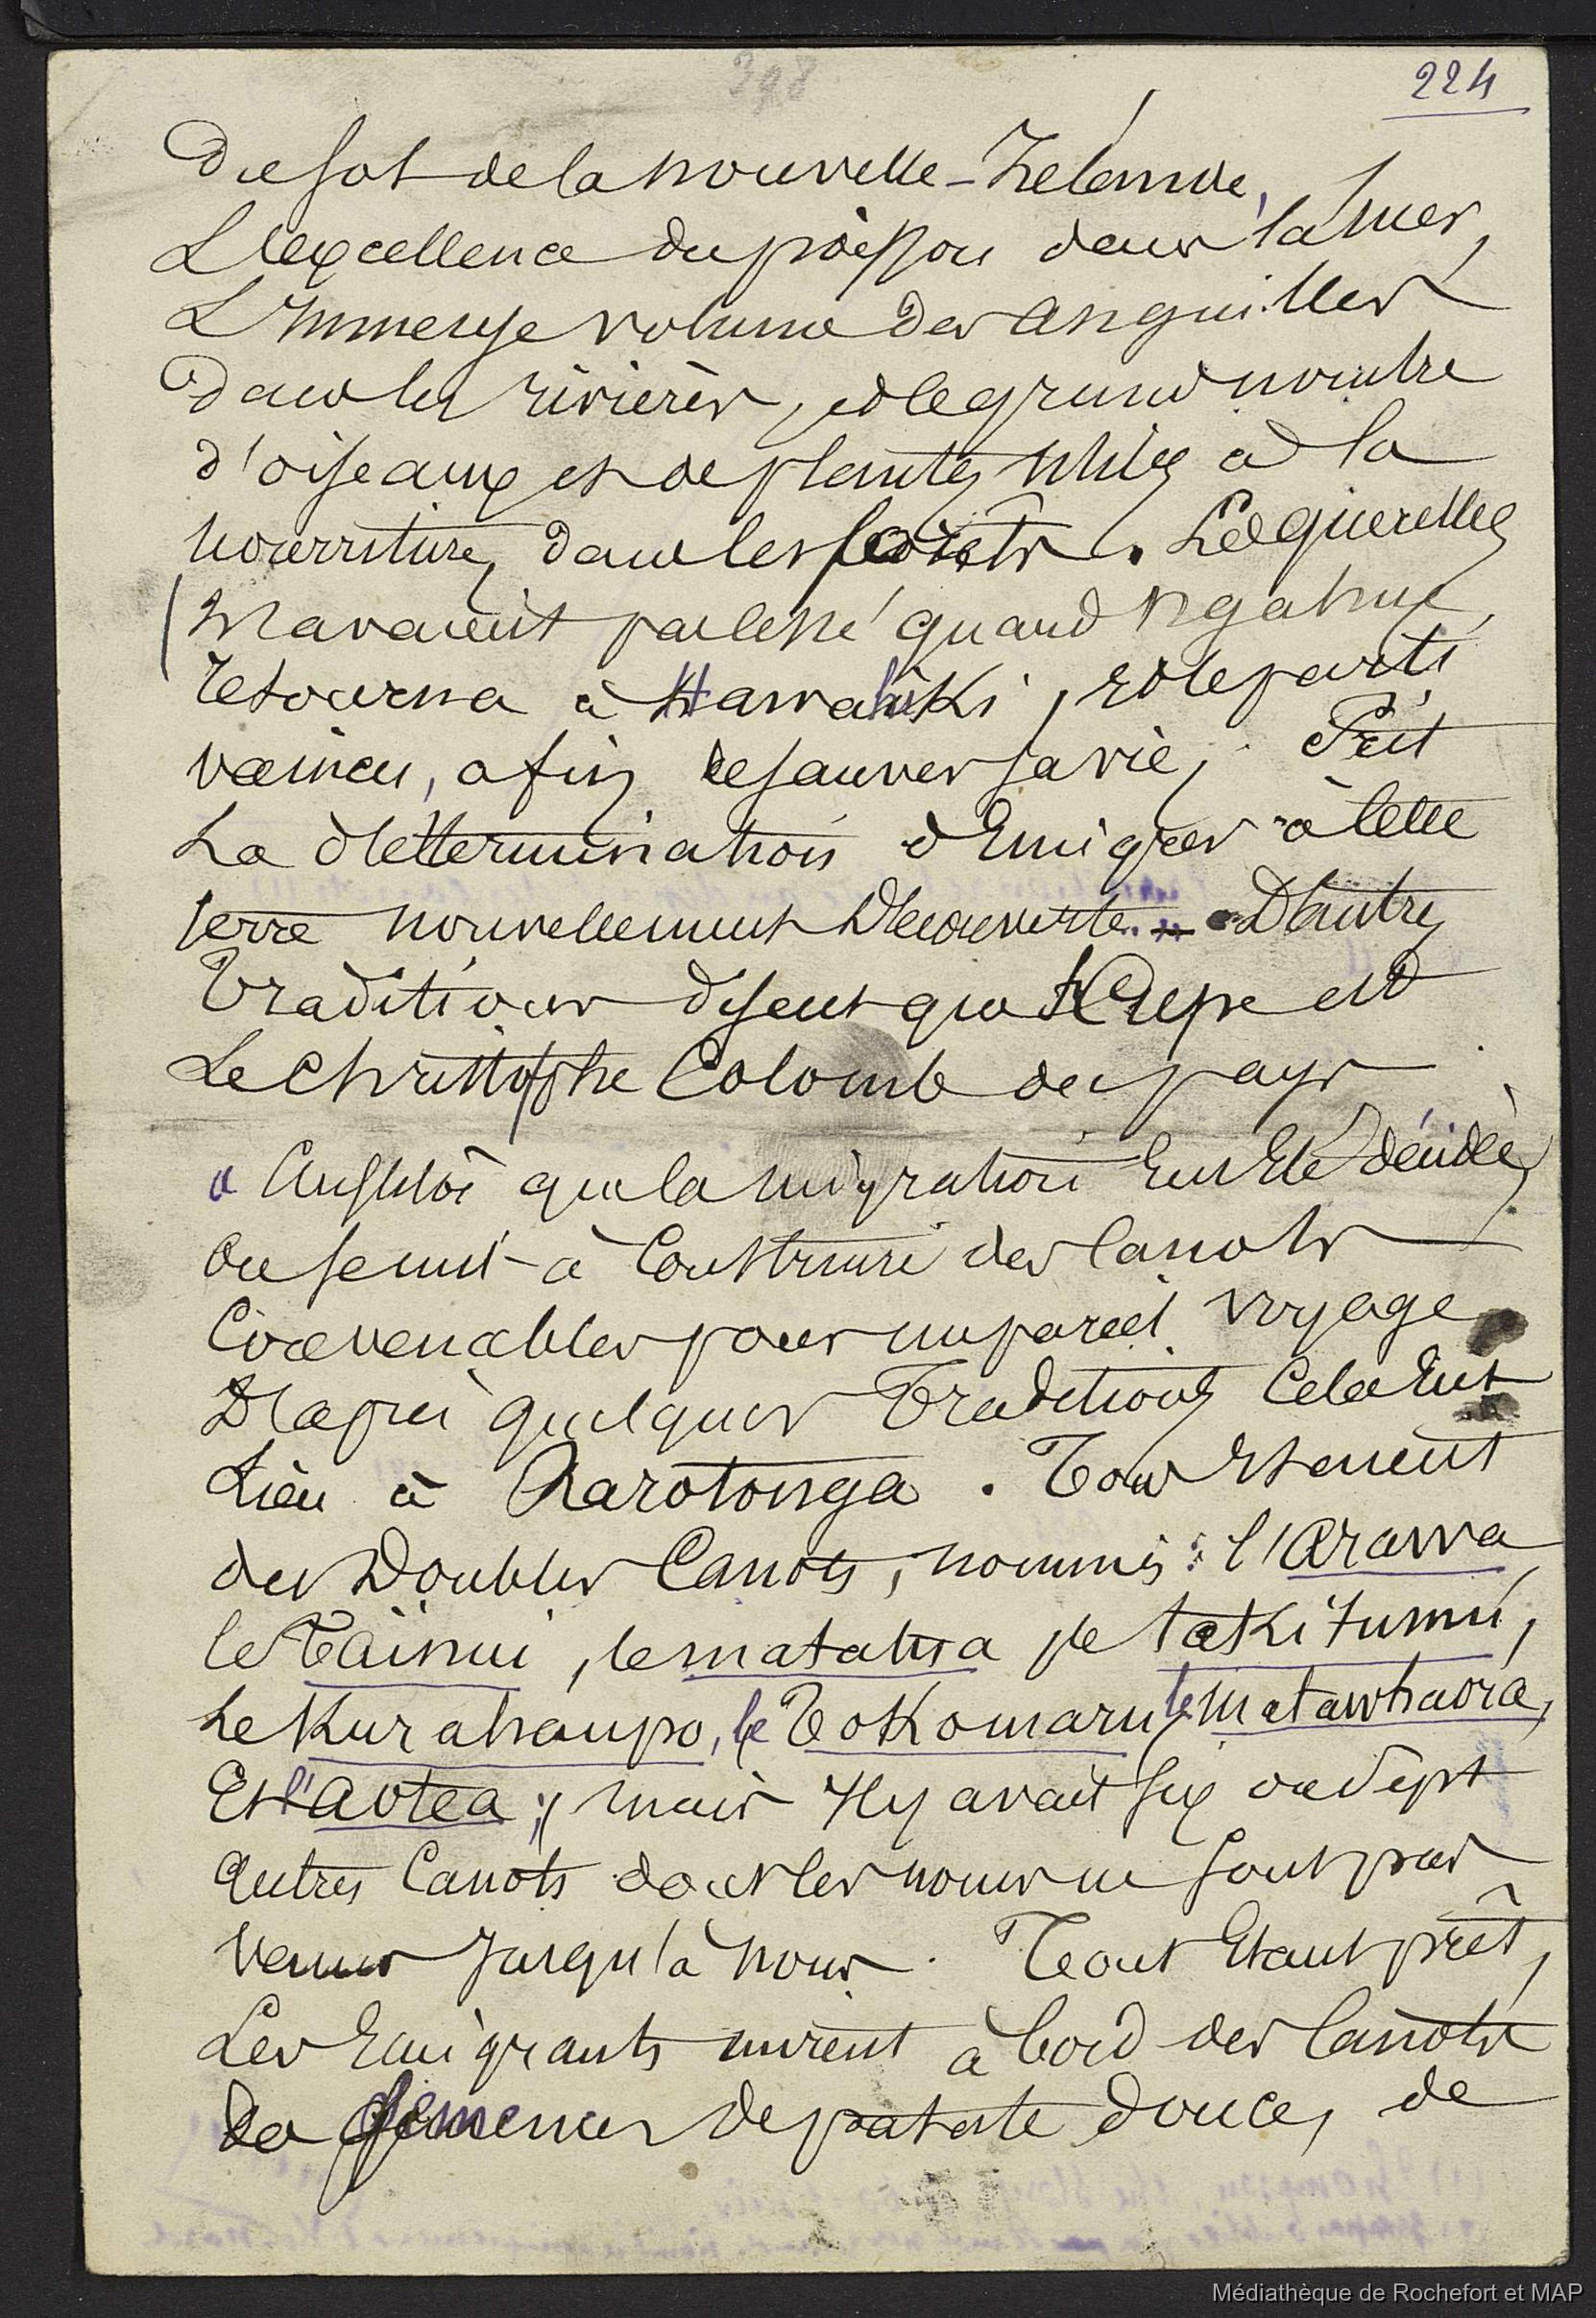 398
224
Du sol de la nouvelle-Zelande,
L'excellence du poisson dans la mer,
L'Immense volume des anguilles
Dans les rivières, et le grand nombre
d'oiseaux et de plantes utiles à la
nourriture, dans les forêts. Les querelles
N'avaient pas cessé quand Ngahue,
retourna à Hawahiki, et le parti
vaincu, afin de sauver sa vie, Prit
La détermination d'Emigrer à cette
terre nouvellement Découverte. D'autres
Traditions disent que Kupe est
Le Christophe Colomb du pays
" Aussitôt que la migration Eut Eté décidée,
on se mit à Construire des Canots
Convenables pour un pareil voyage
D'après quelques Traditions Cela Eut
Lieu à Rarotonga. Tous Etaient
des Doubles Canots, nommés : l'Arawa,
le Taïnui, le matatua, le takitumu,
Le Kurahaupo, le Tokomaru, le matawhaora,
Et l'aotea ; mais Il y avait six ou sept
autres Canots dont les noms ne sont pas
venus Jusqu'à nous. Tout Etant prêt,
Les Emigrants mirent à bord des Canots
Des semences de patate douce, de
Médiathèque de Rochefort et MAP